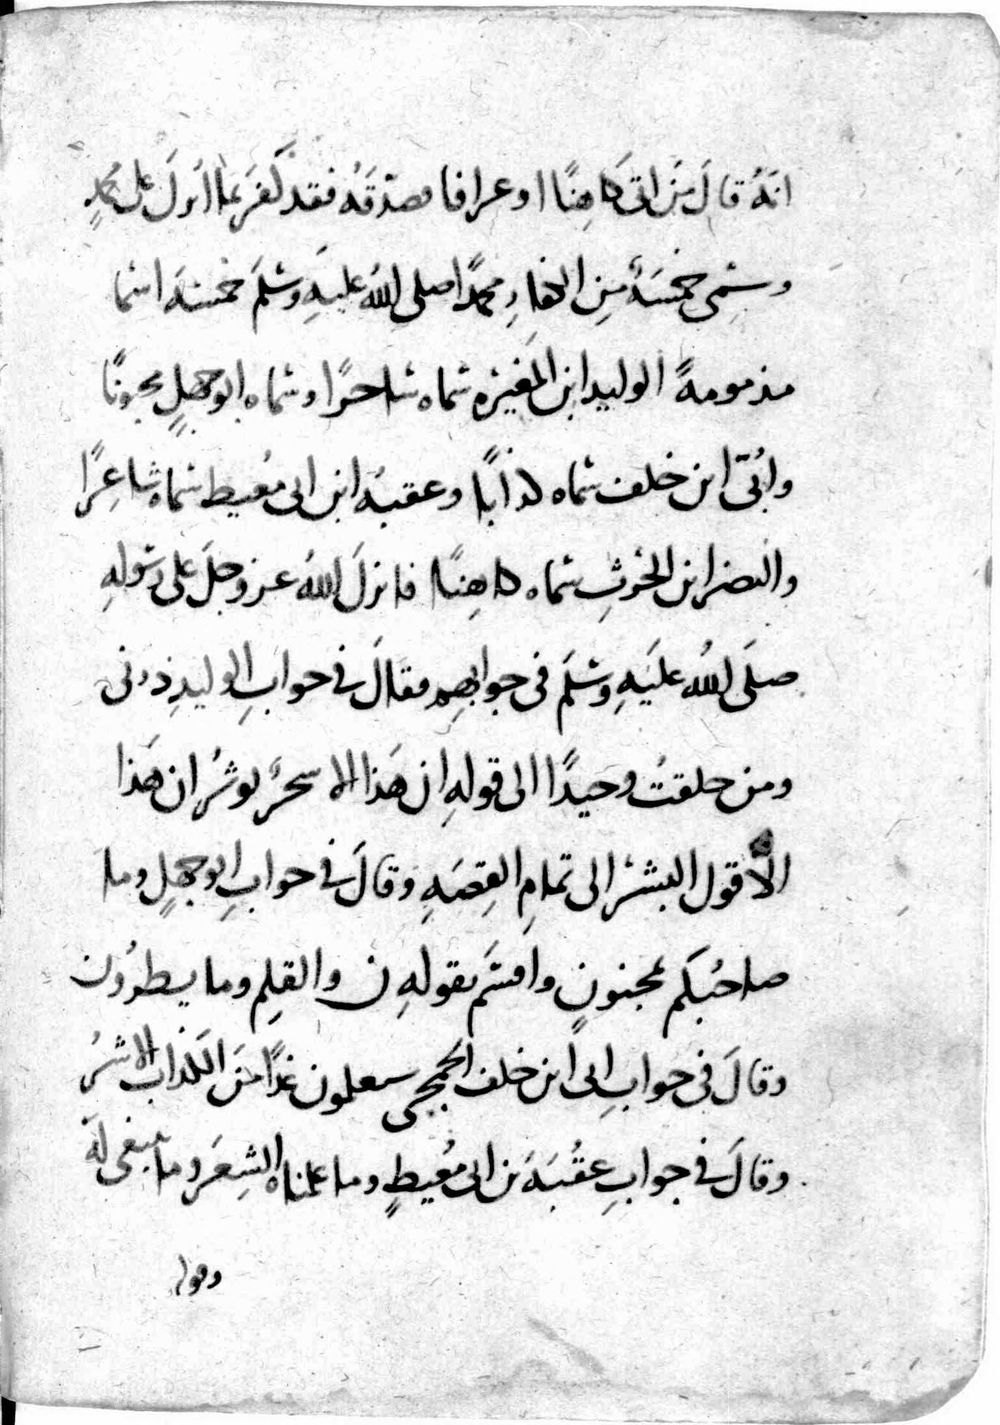 انهُ قالَ مَن اتى كاهِنًا او عرافا فصدّقَهُ فقد كفرَ بما اُنزلَ على محمدٍ
وسَمى خمسَةٌ مِن الكفارِ محمدًا صلى اللهُ عليهِ وسَلمَ خمسةَ اسما
مذمومةً الوليد ابن المغيرَه سَماه سَاحرًا وسَماه ابو جهلٍ مجنونًا
واُبَىّ ابن خلف سَماه كذابًا وعقبهُ ابن ابى مُعيط سَماه شاعِرًا
والنضر ابن الحٰرثِ سَماه كاهِنًا فانزلَ اللهُ عز وجلَ على رسَولهِ
صلَى اللهُ عليَهِ وسَلمَ فى جوابهِم فقالَ فى جوابِ الوليدِ ذرنى
ومن خلقتُ وحيدًا الى قولهِ ان هَذا الا سحرٌ يوثرُ ان هَذا
الاَّ قول البشرْ الى تمامِ القِصَهِ وَقالَ فى جوابِ ابو جهلٍ وما
صاحبُكم بمجنونٍ واقسَم بقولهِ ن والقلمِ وما يسطرُون
وقالَ فى جوابِ ابى ابن خلف الجمحى سيعلمون غدًا مَن الكذاب الاشرُ
وقالَ فى جوابِ عقُبَةَ بن ابى مُعيطٍ وما علمناه الشِعرَ وما ينبغى لهَ